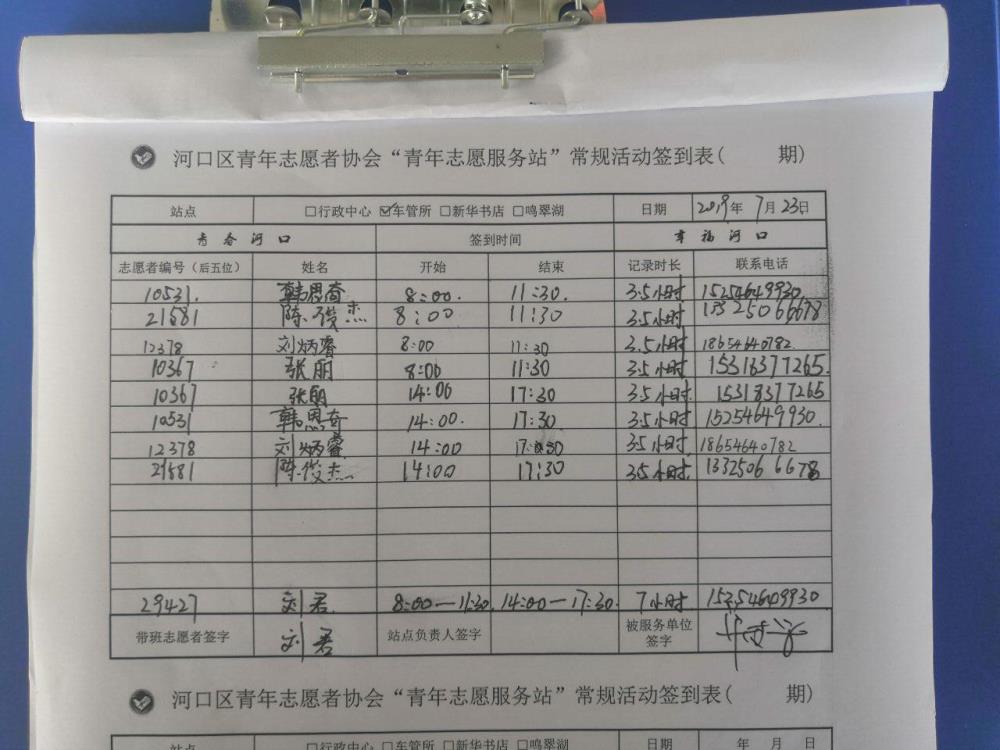 河口区青年志愿者协会“青年志愿服务站”常规活动签到表( 期)
站点 □行政中心 ☑车管所 □新华书店 □鸣翠湖 日期 2019年 7月 23日
青春河口 签到时间 幸福河口
志愿者编号（后五位） 姓名 开始 结束 记录时长 联系电话
10531. 韩思奇 8:00. 11:30. 3.5小时 15254649930
21581 陈俊杰 8:00 11:30 3.5小时 13325066678
12378 刘炳睿 8:00 11:30 3.5小时 18654640782
10367 张丽 8:00 11:30 3.5小时 15318377265.
10367 张丽 14:00 17:30 3.5小时 15318377265
10531 韩思奇 14:00. 17:30 3.5小时 15254649930.
12378 刘炳睿 14:00 17:30 3.5小时 18654640782
21581 陈俊杰 14:00 17:30 3.5小时 13325066678
29427 刘君 8:00—11:30 14:00—17:30. 7小时
带班志愿者签字 刘君 站点负责人签字 被服务单位签字
河口区青年志愿者协会“青年志愿服务站”常规活动签到表( 期)
站点 □行政中心 □车管所 □新华书店 □鸣翠湖 日期 年 月 日